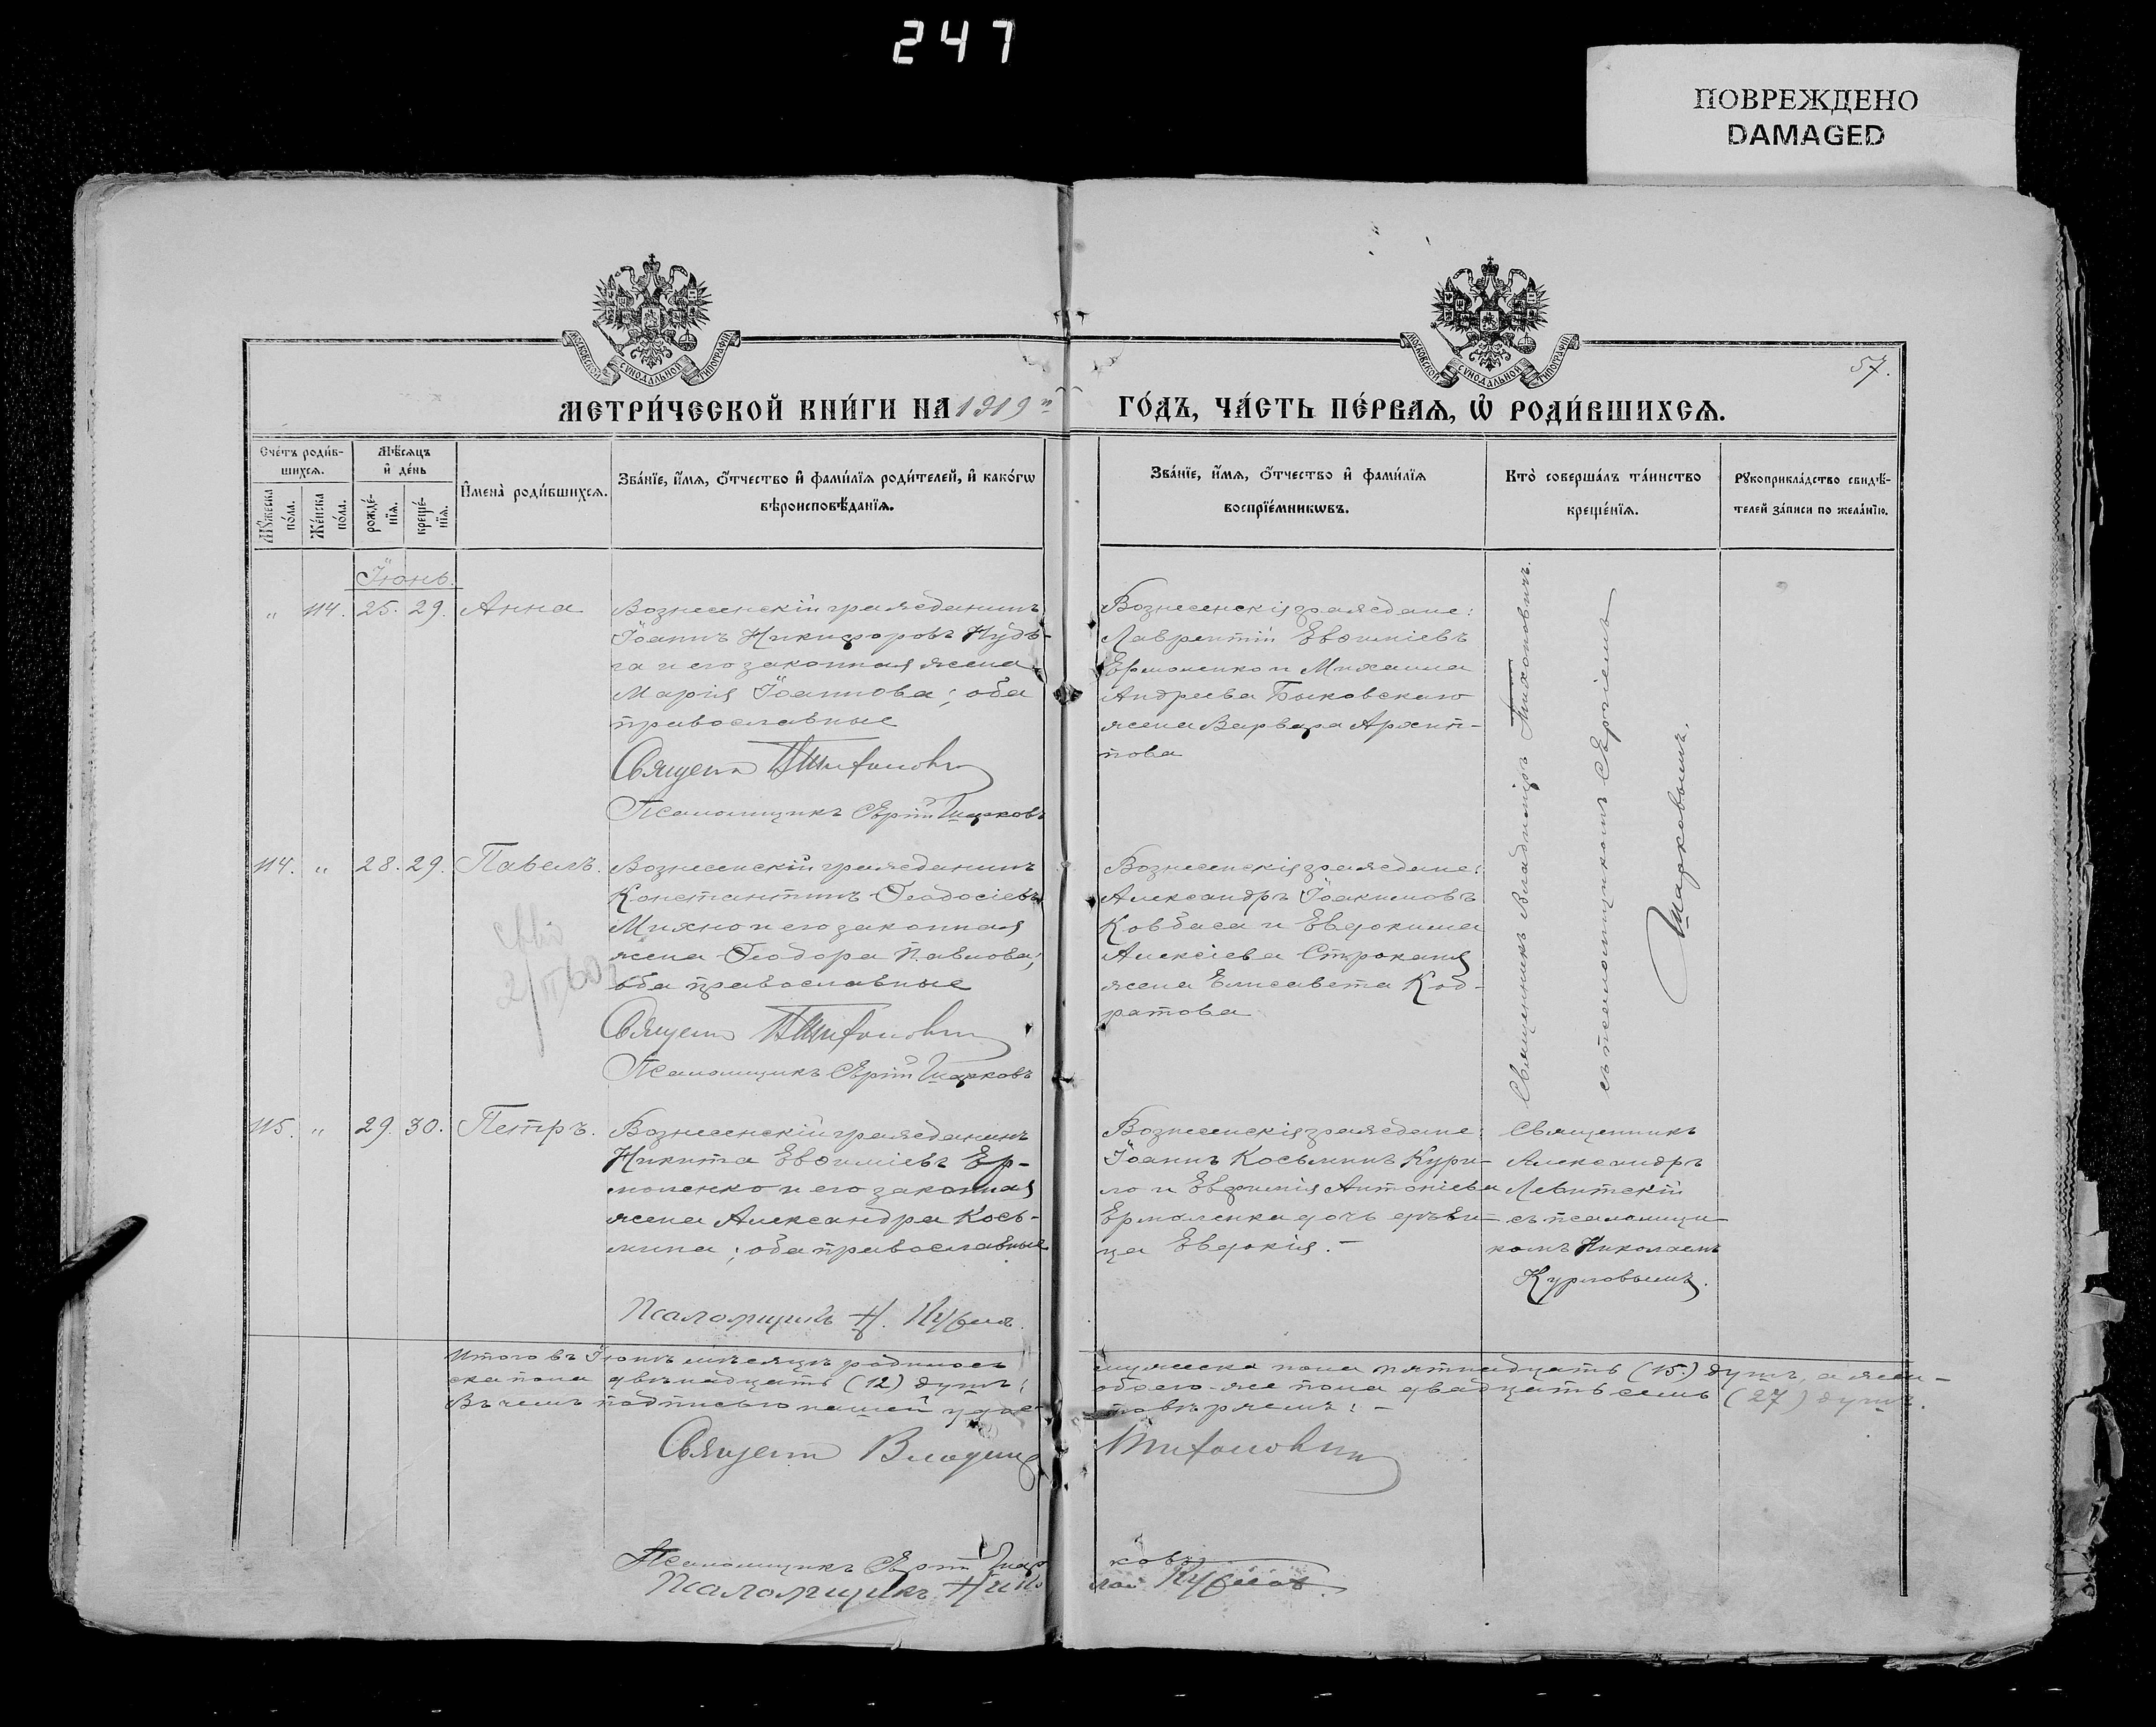 247
ПОВРЕЖДЕНО
DAMAGED
МОСКОВСКОЙ СѴНОДАЛЬНОЙ ТИПОГРАФІИ
МОСКОВСКОЙ СѴНОДАЛЬНОЙ ТИПОГРАФІИ
57.
МЕТРИ́ЧЕСКОЙ КНИ́ГИ НА 1919й ГО́ДЪ, ЧА́СТЬ ПЕ́РВАѦ, Ѡ҆ РОДИ́ВШИХСѦ.
Сче́тъ роди́в-
шихсѧ.
Мꙋ́жеска по́ла.
Же́нска по́ла.
Мѣ́сѧцъ
и҆ де́нь
рожде́-
нїѧ.
креще́-
нїѧ.
И҆мена̀ роди́вшихсѧ.
Зва́нїе, и҆́мѧ, ѻ҆́тчество и҆ фами́лїѧ роди́телей, и҆ како́гѡ
вѣроисповѣ́данїѧ.
Зва́нїе, и҆́мѧ, ѻ҆́тчество и҆ фами́лїѧ
воспрїе́мникѡвъ.
Кто̀ соверша́лъ та́инство
креще́нїѧ.
Рꙋкоприкла́дство свидѣ́-
телей за́писи по жела́нїю.
Іюнь.
" 114. 25. 29. Анна
Вознесенскій гражданинъ
Іоаннъ Никифоровъ Нудь-
га и его законная жена
Марія Іоаннова; оба
православные
Священ ВТихонович
Псаломщикъ Сергій Шарковъ
Вознесенскія граждане:
Лаврентій Евѳиміевъ
Ермоленко и Михаила
Андреева Быковскаго
жена Варвара Архип-
пова
Священникъ Владиміръ Тихоновичъ
съ псаломщикомъ Сергіемъ
Шарковымъ.
114. " 28. 29. Павелъ.
Вознесенскій гражданинъ
Константинъ Ѳеодосіевъ
Михно и его законная
жена Ѳеодора Павлова;
оба православные
Священ ВТихонович
Псаломщикъ Сергій Шарковъ
Вознесенскія граждане:
Александръ Іоакимовъ
Ковбаса и Евдокима
Алексіева Строкана
жена Елисавета Код-
ратова
115. " 29. 30. Петръ.
Вознесенскій гражданинъ
Никита Евѳиміевъ Ер-
моленко и его законная
жена Александра Кось-
мина; оба православные
Псаломщикъ Н. Курлов.
Вознесенскія граждане:
Іоаннъ Косьминъ Кури-
ло и Евфимія Антоніева
Ермоленка дочь дѣви-
ца Евдокія.-
Священникъ
Александръ
Левитскій
съ псаломщи-
комъ Николаемъ
Курловымъ.
Итого въ Іюнѣ мѣсяцѣ родилось мужеска пола пятнадцать (15.) душъ, а жен-
ска пола двѣнадцать (12) душъ; обоего-же пола двадцать семь (27) душъ.
Въ чемъ подписью нашей удостовѣряемъ:-
Священ Владимір Тихонович
Псаломщикъ Сергій Шарковъ
Псаломщикъ Николай Курлов.